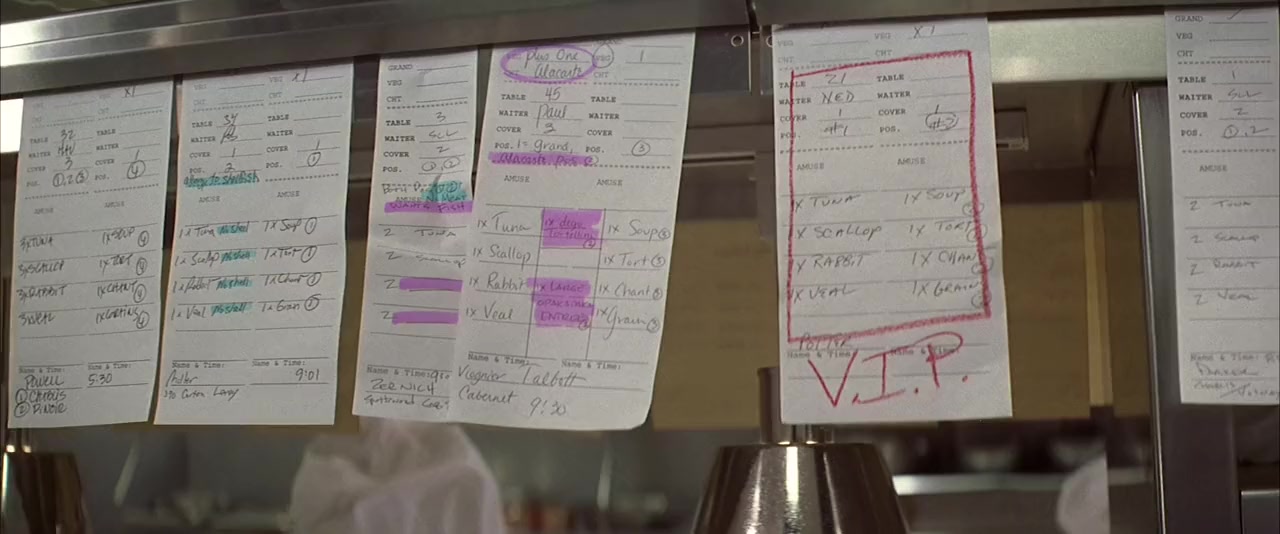 CHT
X1
TABLE 32 TABLE
WAITER WAITER
COVER 3 COVER 1
POS. ①,②③ POS. ④
AMUSE AMUSE
3XTUNA 1XSOUP ④
3XSCALLOP 1XTORT ④
3XRABBIT 1XCHANT ④
3XVEAL 1XGRAIN ④
Name & Time:
POWELL 5:30
① CHABLIS
② P.NOIR
VEG VEG X1
CHT CHT
TABLE 34 TABLE
WAITER WAITER
COVER 1 COVER 1
POS. 2 POS. ①
allergy to shellfish
AMUSE
1x Tuna No shell 1x Soup ①
1x Scallop No shell 1x Tort ①
1x Rabbit No shell 1x Chant ①
1x Veal No shell 1x Grain ①
Name & Time: Name & Time:
Adler 9:01
GRAND
VEG
CHT
TABLE 3
WAITER SLL
COVER 2
POS. ①,②
AMUSE NO MEAT
WANTS FISH
2 TUNA
2 Scallop
2
2
Name & Time:
ZERNICH
Plus One VEG 1
Alacarte CHT
TABLE 45 TABLE
WAITER Paul WAITER
COVER 3 COVER
POS. 1 = Grand, ③
Alacarte Pos. 2
AMUSE AMUSE
1x Tuna 1x Soup ③
1x Scallop 1x Tort ③
1x Rabbit 1x LARGE 1x Chant ③
1x Veal ENTREE 1x Grain ③
Name & Time: Name & Time:
Viognier Talbott
Cabernet 9:30
VEG VEG X1
CHT
TABLE 21 TABLE
WAITER NED WAITER
COVER 1 COVER 1
POS. #1 POS. #2
AMUSE AMUSE
1X TUNA 1X SOUP
1X SCALLOP 1X TORT
1X RABBIT 1X CHANT
1X VEAL 1X GRAIN
POTTER
Name & Time: Name & Time:
V.I.P.
GRAND
VEG
CHT
TABLE 1
WAITER SLL
COVER 2
POS. ①,2
AMUSE
2 TUNA
2 Scallop
2 RABBIT
2 VEAL
Name & Time: